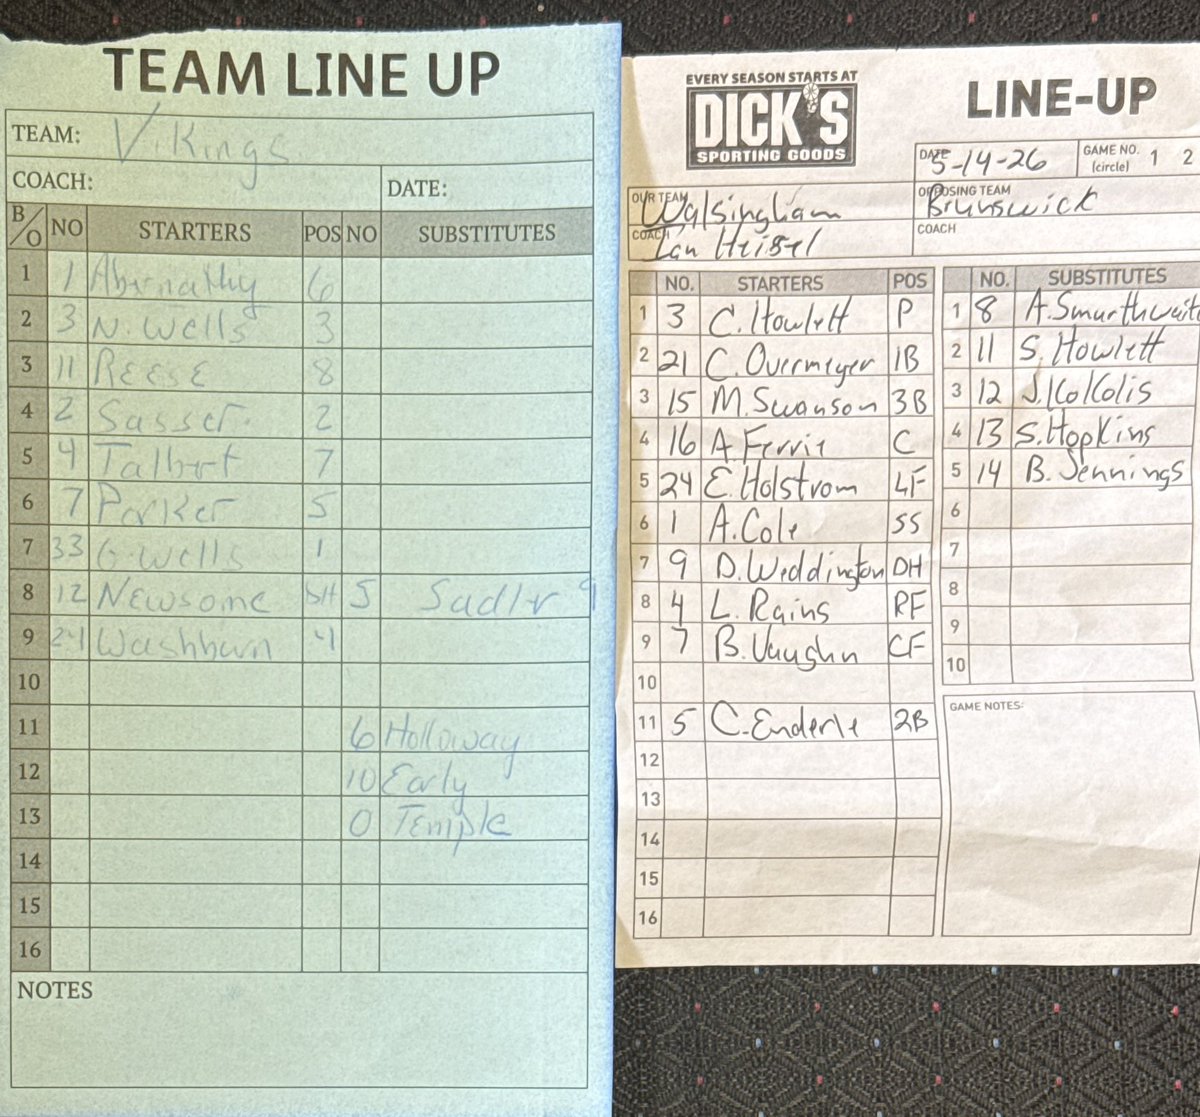 TEAM LINE UP
TEAM: Vikings
COACH: DATE:
B/O NO STARTERS POS NO SUBSTITUTES
1 1 Abernathy 6
2 3 N. Wells 3
3 11 REESE 8
4 2 Sasser 2
5 4 Talbert 7
6 7 Parker 5
7 33 G. Wells 1
8 12 Newsome DH 5 Sadler 9
9 24 Washburn 4
10
11 6 Holloway
12 10 Early
13 0 Temple
14
15
16
NOTES
EVERY SEASON STARTS AT
DICK'S
SPORTING GOODS
LINE-UP
DATE 5-14-26 GAME NO. (circle) 1 2
OUR TEAM Walsingham OPPOSING TEAM Brunswick
COACH Ian Heisel COACH
NO. STARTERS POS
1 3 C. Howlett P
2 21 C. Overmeyer 1B
3 15 M. Swanson 3B
4 16 A. Ferrie C
5 24 E. Holstrom LF
6 1 A. Cole SS
7 9 D. Weddington DH
8 4 L. Rains RF
9 7 B. Vaughn CF
10
11 5 C. Enderle 2B
12
13
14
15
16
NO. SUBSTITUTES
1 8 A. Smurthwaite
2 11 S. Howlett
3 12 J. Kolkolis
4 13 S. Hopkins
5 14 B. Jennings
6
7
8
9
10
GAME NOTES: